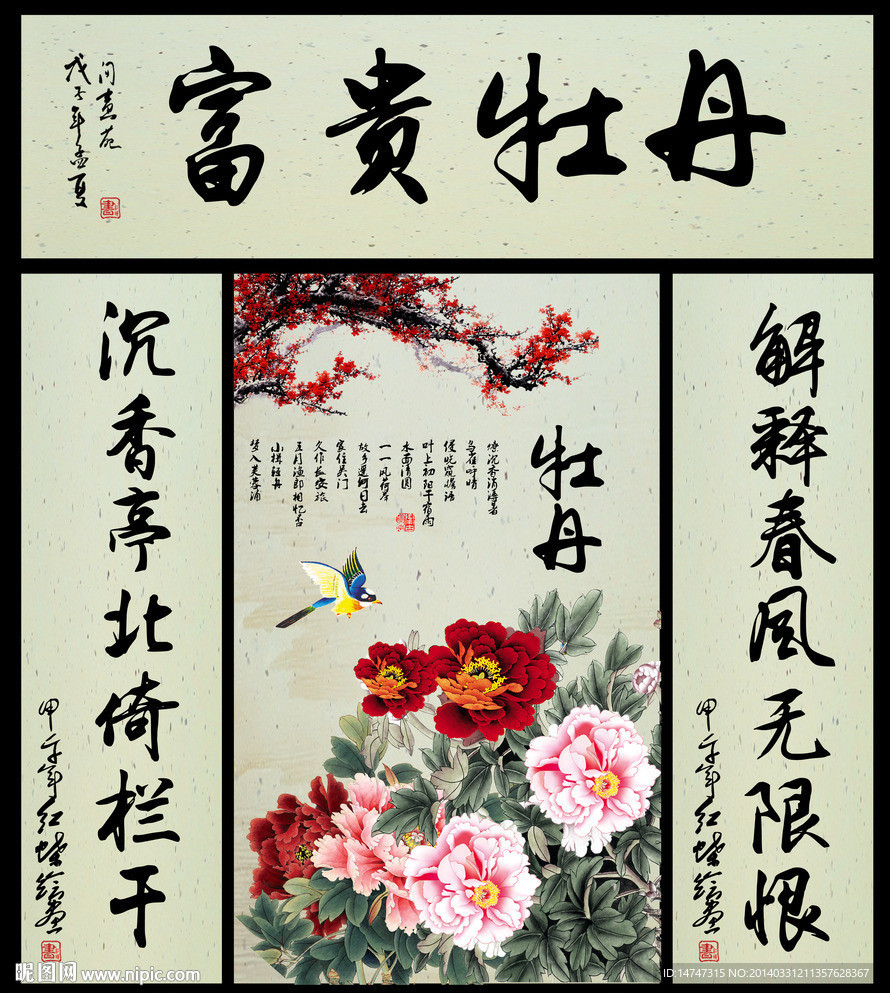 富贵牡丹
戊子年孟夏
解释春风无限恨
甲午年
牡丹
燎沉香消溽暑
鸟雀呼晴
侵晓窥檐语
叶上初阳干宿雨
水面清圆
一一风荷举
故乡遥何日去
家住吴门
久作长安旅
五月渔郎相忆否
小楫轻舟
梦入芙蓉浦
沉香亭北倚栏干
甲午年
昵图网 www.nipic.com
ID:14747315 NO:20140331211357628367